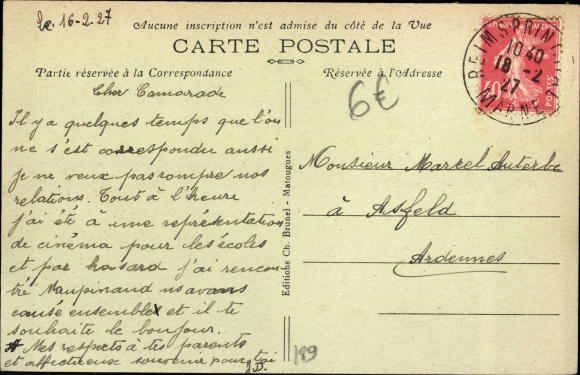 Le 16-2.27
Aucune inscription n'est admise du côté de la Vue
CARTE POSTALE
Partie réservée à la Correspondance
Réservée à l'Adresse
REIMS PRINC
10 40
18 -2
27
MARNE
40
POSTES
6€
Cher Camarade
Il y a quelques temps que l'on
ne s'est correspondu aussi
je ne veux pas rompre nos
relations. Tout à l'heure
j'ai été à une représentation
de cinéma pour les écoles
et par hasard j'ai rencon
tré Maupinand ns avons
causé ensemble et il te
souhaite le bonjour.
Mes respects à tes parents
et affectueux souvenir pour toi
J.D.
Editions Ch. Brunel - Matougues
Monsieur Marcel Auterbe
à Asfeld
Ardennes
189